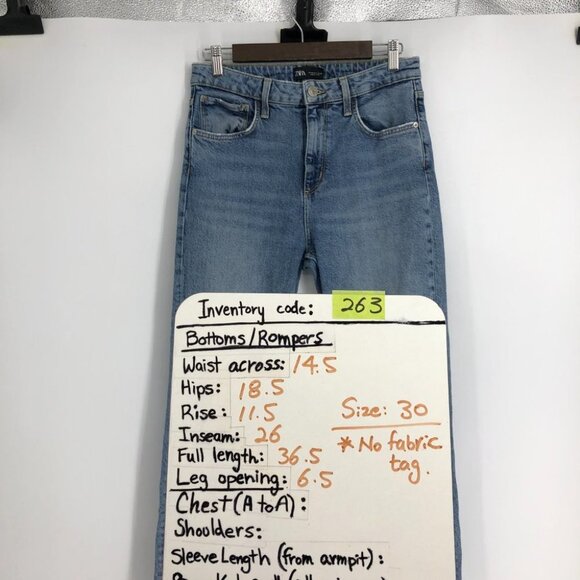 ZARA
Inventory code: 263
Bottoms/Rompers
Waist across: 14.5
Hips: 18.5
Rise: 11.5
Inseam: 26
Full length: 36.5
Leg opening: 6.5
Size: 30
* No fabric
tag.
Chest (A to A):
Shoulders:
Sleeve Length (from armpit):